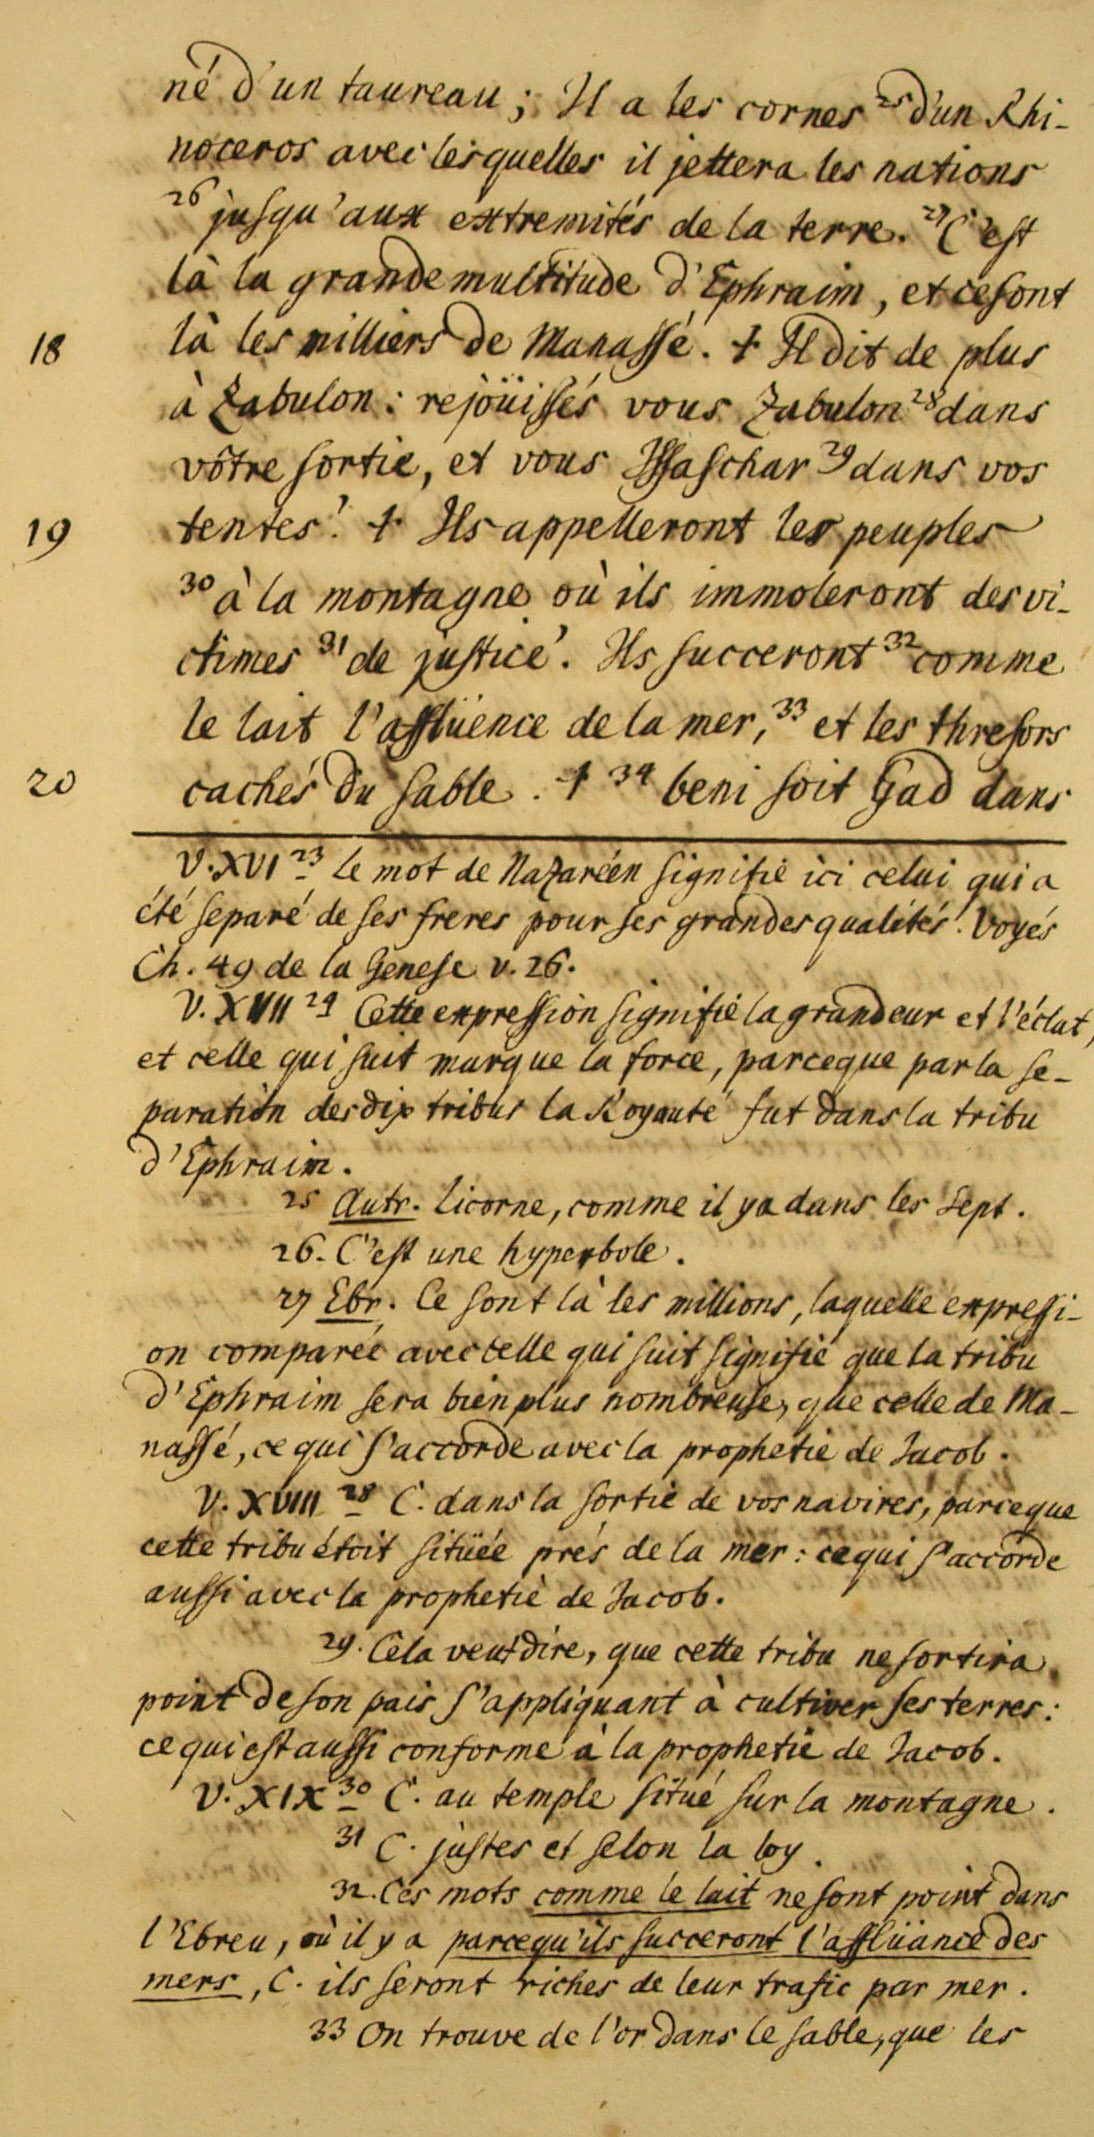 né d'un taureau; Il a les cornes ²⁵ d'un Rhi-
noceros avec lesquelles il jettera les nations
²⁶ jusqu'aux extremités de la terre. ²⁷ C'est
là la grande multitude d'Ephraim, et ce sont
18 là les milliers de Manassé. + Il dit de plus
à Zabulon: rejoüissés vous Zabulon ²⁸ dans
vôtre sortie, et vous Issaschar ²⁹ dans vos
19 tentes. + Ils appelleront les peuples
³⁰ à la montagne où ils immoleront des vi-
ctimes ³¹ de justice. Ils succeront ³² comme
le lait l'afflüence de la mer, ³³ et les thresors
20 cachés du sable. + ³⁴ beni soit Gad dans
V. XVI ²³ le mot de Nazaréen signifie ici celui qui a
été separé de ses freres pour ses grandes qualités. Voyés
Ch. 49 de la Genese v. 26.
V. XVII ²⁴ Cette expression signifie la grandeur et l'éclat,
et celle qui suit marque la force, parceque par la se-
paration des dix tribus la Royauté fut dans la tribu
d'Ephraim.
25 Autr. licorne, comme il y a dans les Sept.
26. C'est une hyperbole.
27 Ebr. Ce sont là les millions, laquelle expressi-
on comparée avec celle qui suit signifie que la tribu
d'Ephraim sera bien plus nombreuse, que celle de Ma-
nassé, ce qui s'accorde avec la prophetie de Jacob.
V. XVIII ²⁸ C. dans la sortie de vos navires, parceque
cette tribu étoit sitüée prés de la mer: ce qui s'accorde
aussi avec la prophetie de Jacob.
29. Cela veut dire, que cette tribu ne sortira
point de son pais s'appliquant à cultiver ses terres:
ce qui est aussi conforme à la prophetie de Jacob.
V. XIX ³⁰ C. au temple situé sur la montagne.
31 C. justes et selon la loy.
32. Ces mots comme le lait ne sont point dans
l'Ebreu, où il y a parcequ'ils succeront l'afflüance des
mers, C. ils seront riches de leur trafic par mer.
33 On trouve de l'or dans le sable, que les